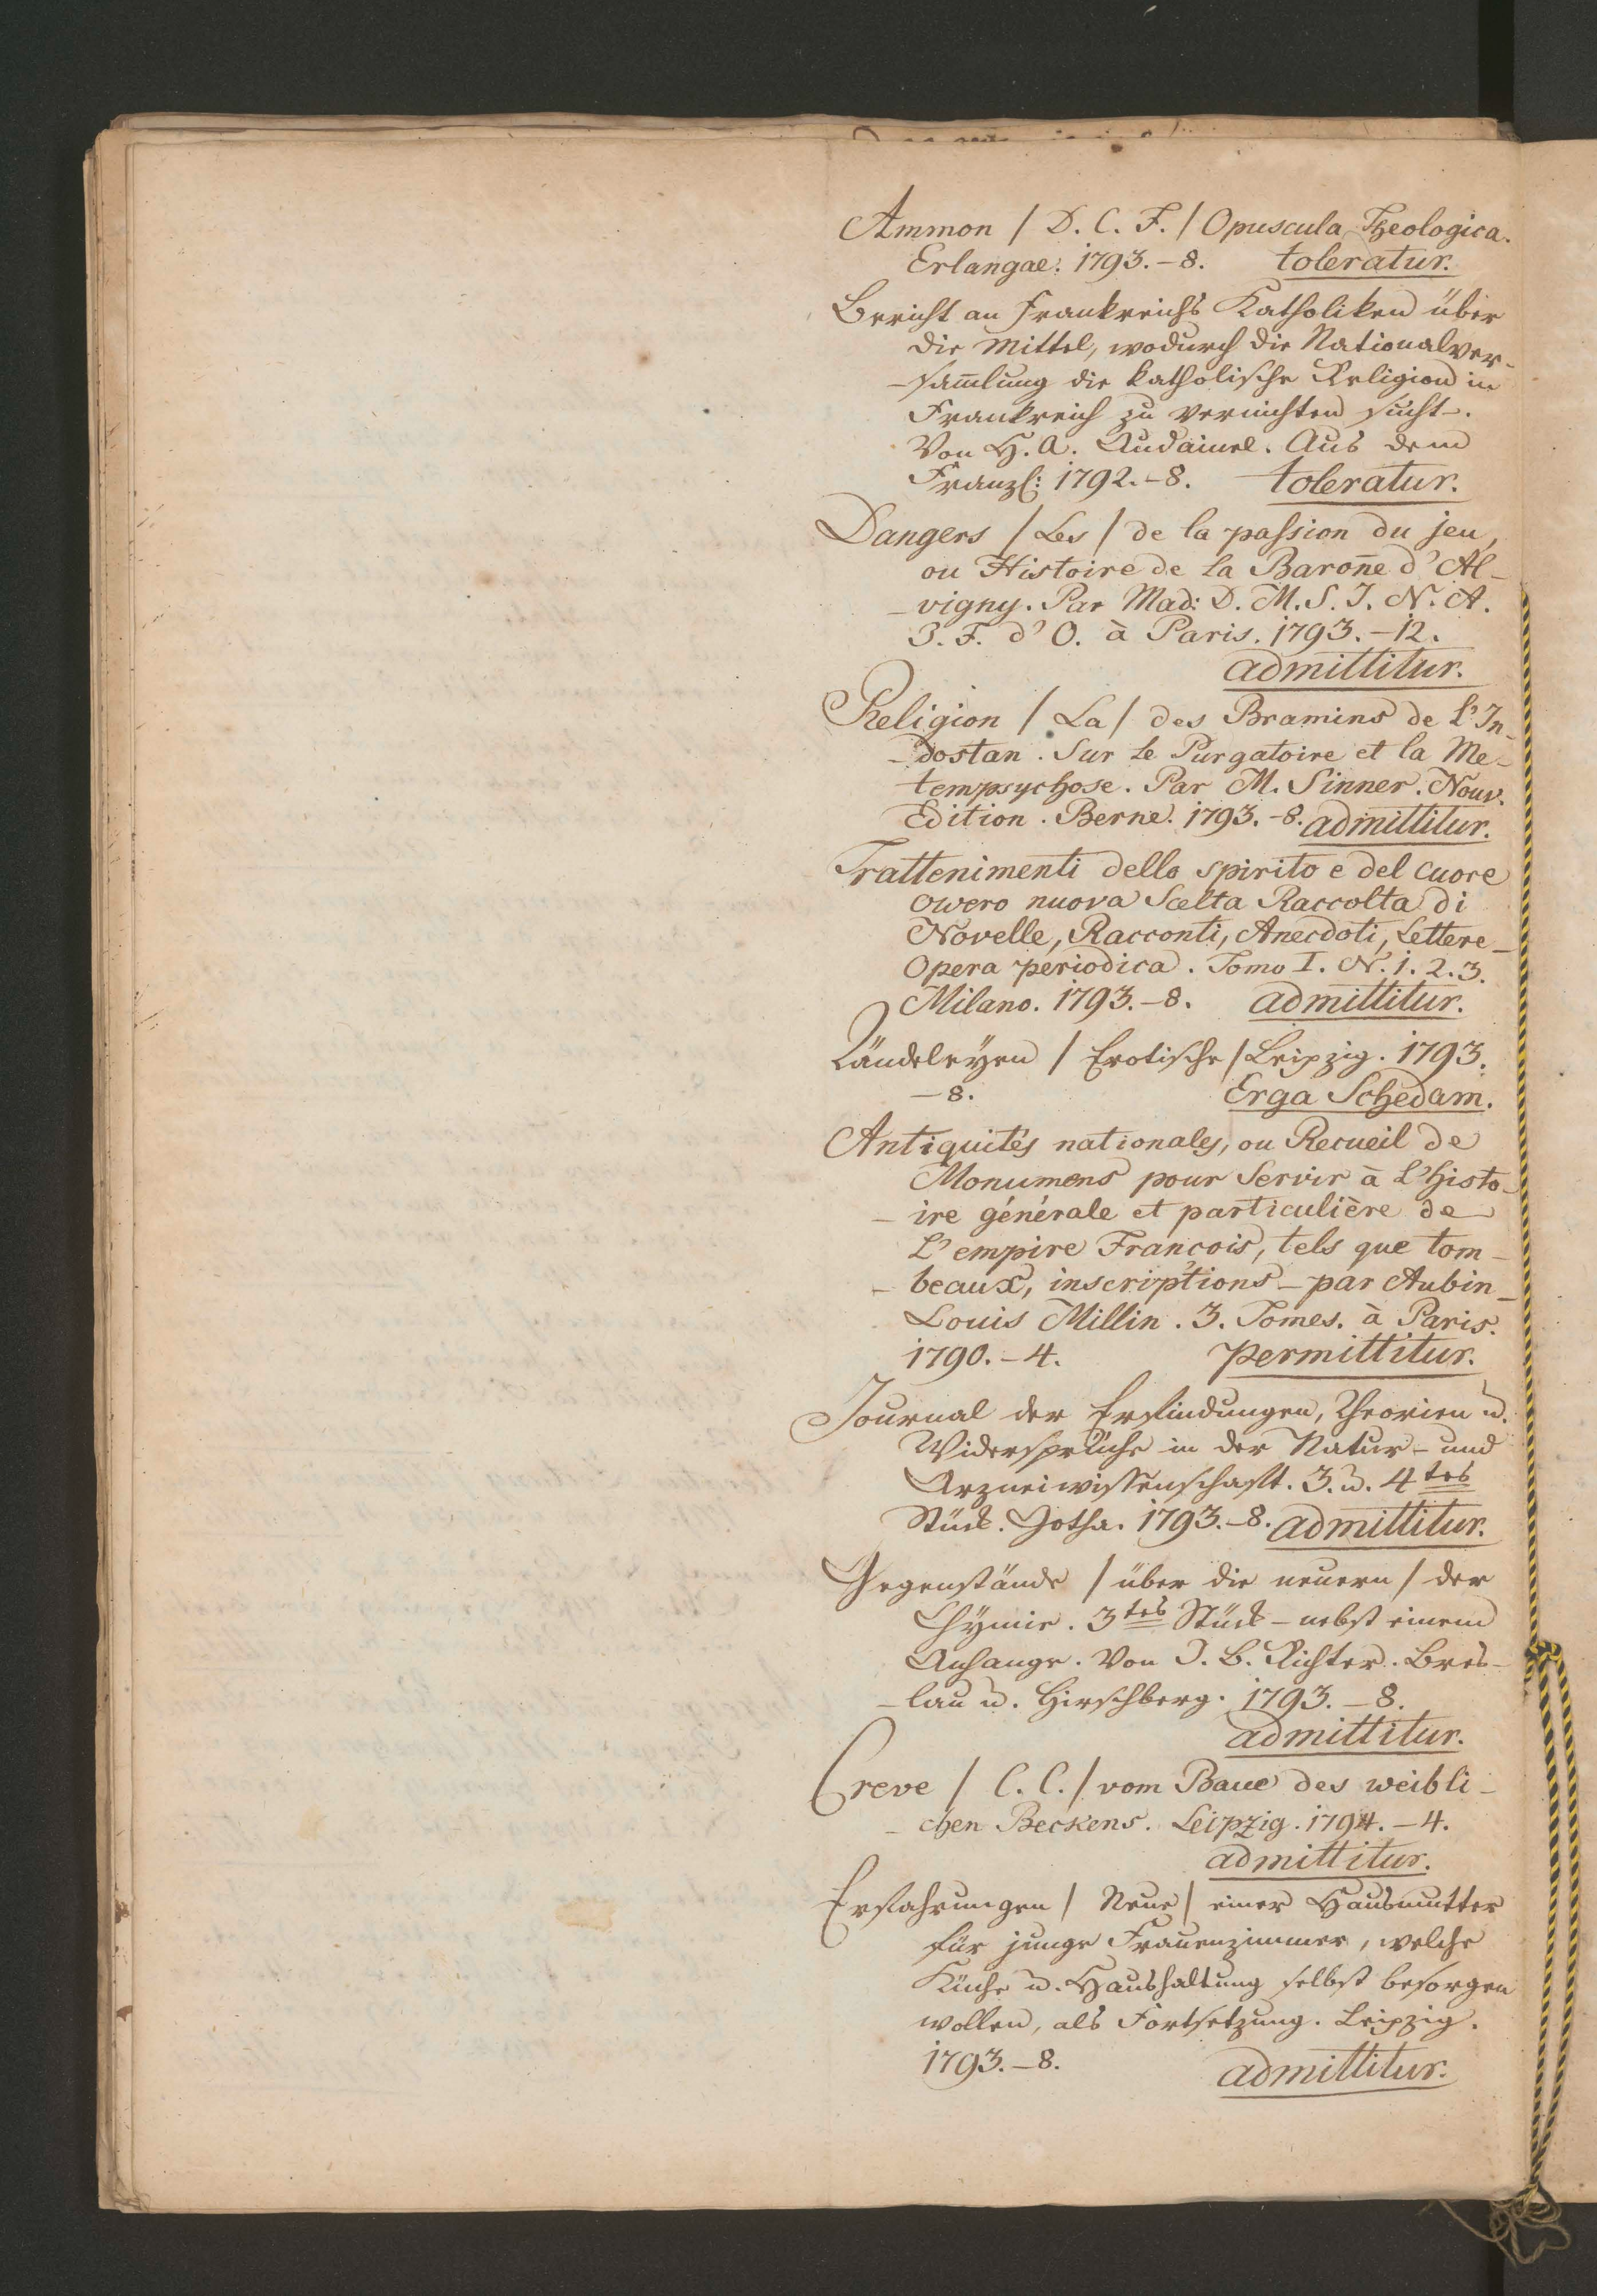 Ammon / D. C. F. / Opuscula Theologica.
Erlangae. 1793.–8. toleratur.
Bericht an Frankreichs Katholiken über
die Mittel, wodurch die Nationalver-
-sam̅lung die katholische Religion in
Frankreich zu vernichten sucht –.
Von H. A. Audainel. Aus dem
Franzſ: 1792.–8. toleratur.
Dangers / Les / de la passion du jeu,
ou Histoire de la Baron̅e d'Al-
-vigny. Par Mad: D. M. S. J. N. A.
J. F. d'O. à Paris. 1793.–12.
admittitur.
Religion / La / des Bramins de L'In-
-dostan. Sur Le Purgatoire et la Me-
tempsychose. Par M. Sinner. Nouv.
Edition. Berne. 1793.–8. admittitur.
Trattenimenti dello spirito e del cuore
ovvero nuova Scelta Raccolta di
Novelle, Racconti, Anecdoti, Lettere –
Opera periodica. Tomo I. N. 1. 2. 3.
Milano. 1793.–8. admittitur.
Tändeleyen / Erotische / Leipzig. 1793.
–8. Erga Schedam.
Antiquités nationales, ou Recueil de
Monumens pour Servir à L'histo-
-ire générale et particulière de
L'empire François, tels que tom-
-beaux, inscriptions – par Aubin-
Louis Millin. 3. Tomes. à Paris.
1790.–4. permittitur.
Journal der Erfindungen, Theorien u.
Widersprüche in der Natur- und
Arzneiwissenschaft. 3. u. 4tes
Stück. Gotha. 1793.–8. admittitur.
Gegenstände / über die neuern / der
Chÿmie. 3tes Stück – nebst einem
Anhange. Von J. B. Richter. Bres-
-lau u. Hirschberg. 1793.–8.
admittitur.
Creve / C. C. / vom Baue des weibli-
-chen Beckens. Leipzig. 1794.–4.
admittitur.
Erfahrungen / Neue / einer Hausmutter
für junge Frauenzimmer, welche
Küche u. Haushaltung selbst besorgen
wollen, als Fortsetzung. Leipzig.
1793.–8. admittitur.